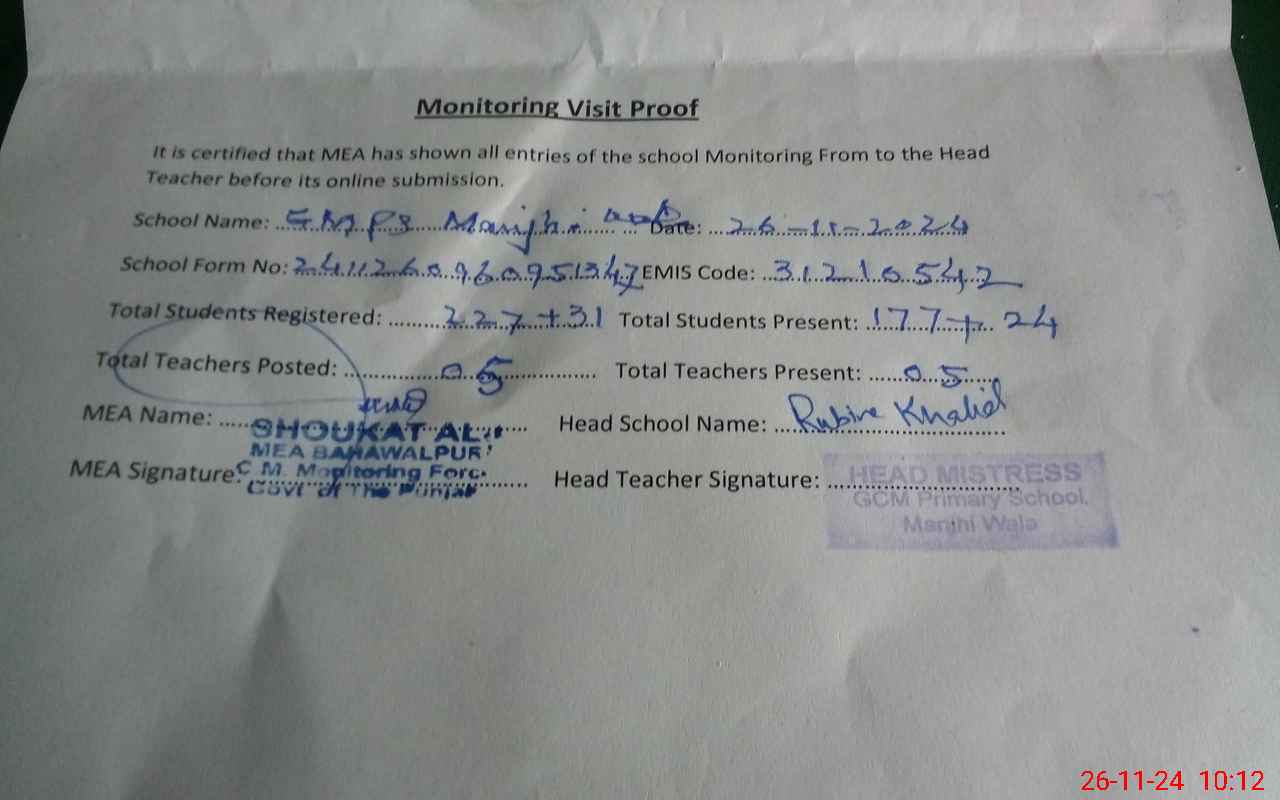 Monitoring Visit Proof
It is certified that MEA has shown all entries of the school Monitoring From to the Head
Teacher before its online submission.
School Name: GMPS Manjhi Date: 26-11-2024
School Form No: 2411260960951347 EMIS Code: 31210542
Total Students Registered: 227+31 Total Students Present: 177+24
Total Teachers Posted: 05 Total Teachers Present: 05
MEA Name: Head School Name: Rubina Khalid
SHOUKAT ALI
MEA BAHAWALPUR
MEA Signature: Head Teacher Signature:
C.M. Monitoring Force
Govt of The Punjab
HEAD MISTRESS
GCM Primary School,
Manjhi Wala
26-11-24 10:12